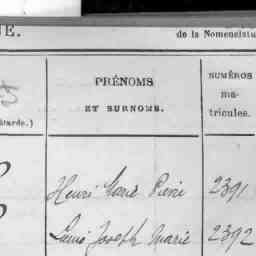 NE.
de la Nomenclatu
PRÉNOMS
ET SURNOMS.
NUMÉROS
ma-
tricules.
bâtarde.)
Henri René Pierre 2391
Louis Joseph Marie 2392